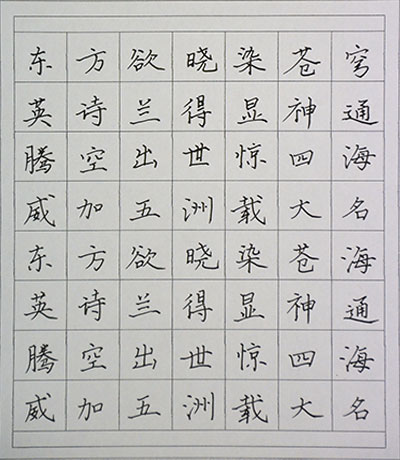 东方欲晓染苍穹
英诗兰得显神通
腾空出世惊四海
威加五洲载大名
东方欲晓染苍海
英诗兰得显神通
腾空出世惊四海
威加五洲载大名